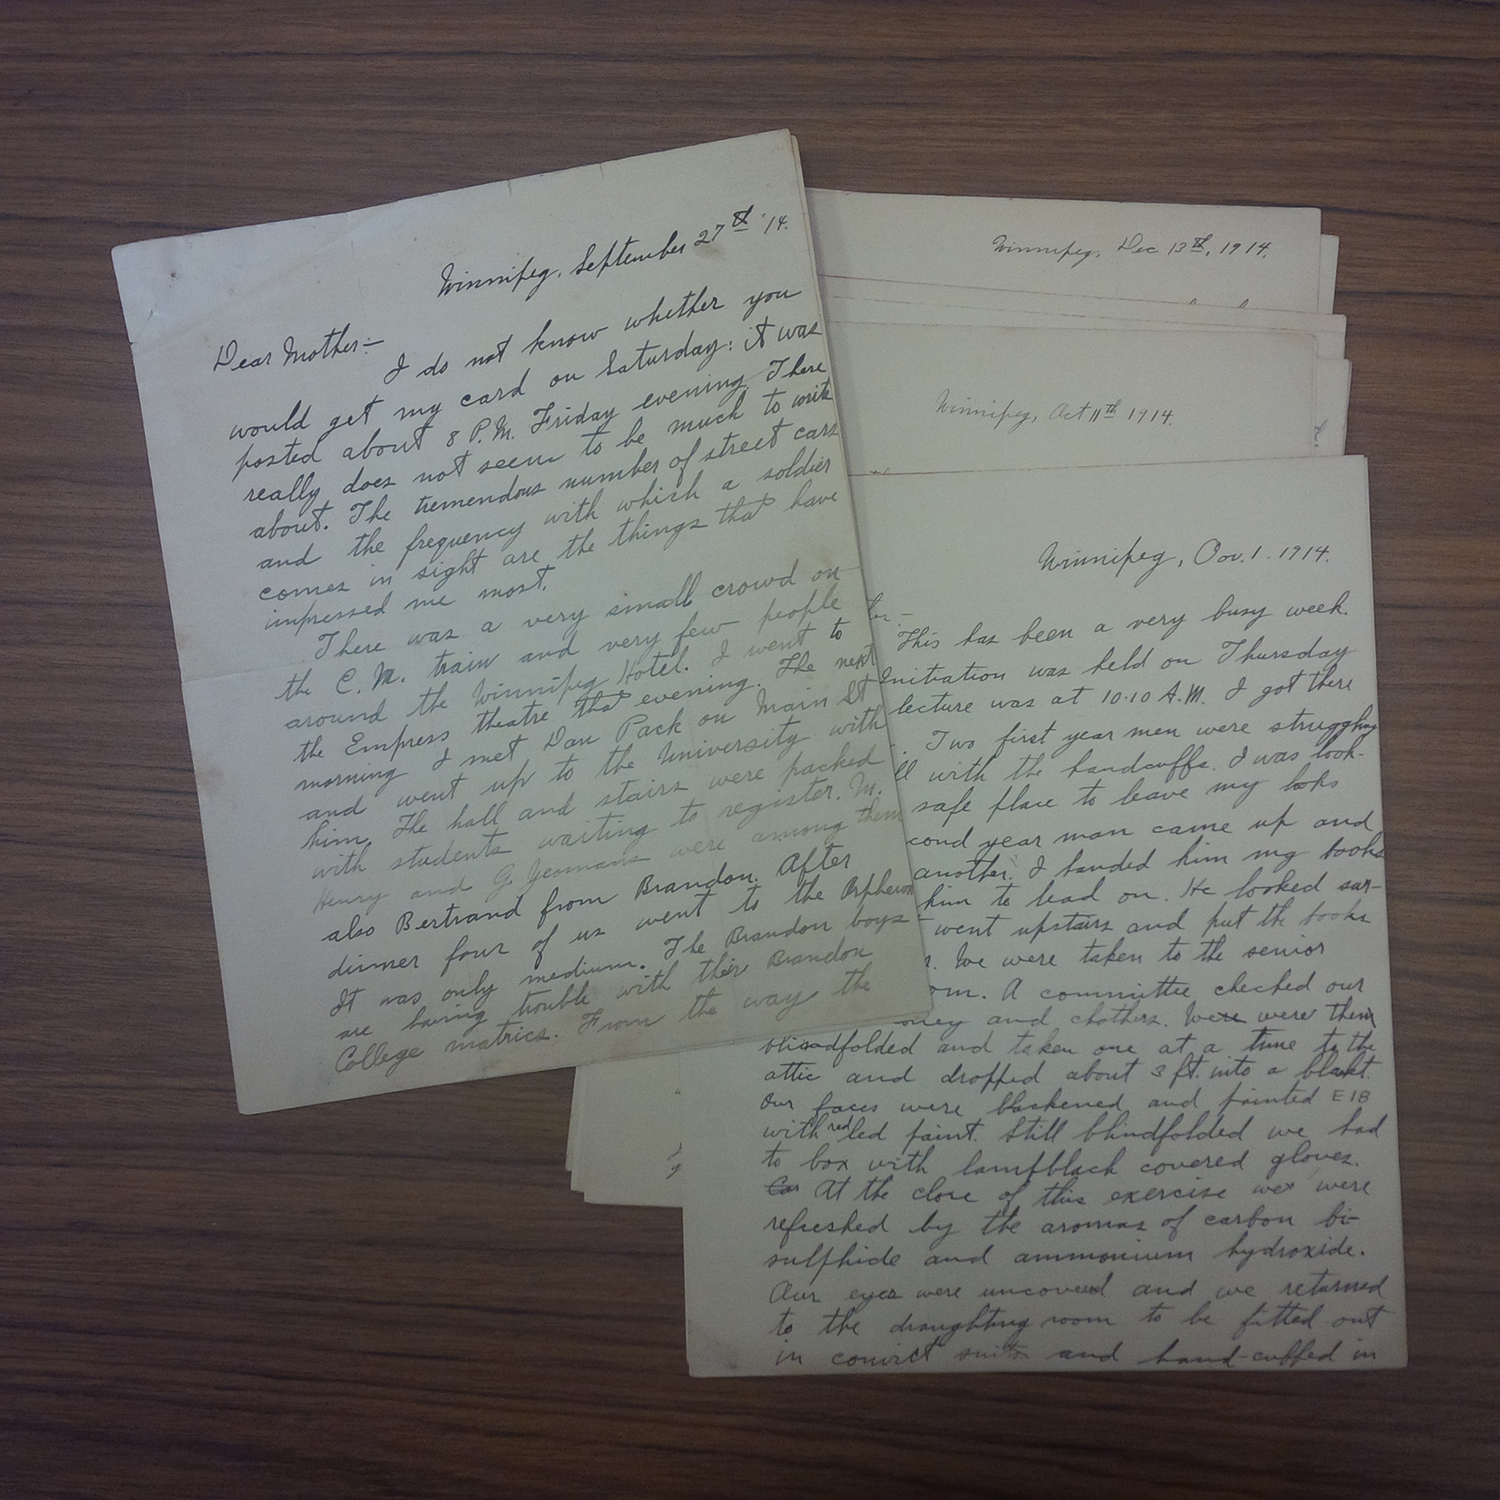 Winnipeg, September 27th '14.
Dear Mother:-
I do not know whether you
would get my card on Saturday: it was
posted about 8 P.M. Friday evening. There
really does not seem to be much to write
about. The tremendous number of street cars
and the frequency with which a soldier
comes in sight are the things that have
impressed me most.
There was a very small crowd on
the C. M. train and very few people
around the Winnipeg Hotel. I went to
the Empress theatre that evening. The next
morning I met Dan Pack on Main St
and went up to the University with
him. The hall and stairs were packed
with students waiting to register. M.
Henry and G. Yeomans were among them
also Bertrand from Brandon. After
dinner four of us went to the Orpheum
It was only medium. The Brandon boys
are having trouble with their Brandon
College matrics. From the way the
Winnipeg, Dec 13th, 1914.
Winnipeg, Oct 11th 1914.
Winnipeg, Nov. 1. 1914.
This has been a very busy week.
Initiation was held on Thursday
lecture was at 10.10 A.M. I got there
Two first year men were struggling
with the handcuffs. I was look-
safe place to leave my books
cond year man came up and
another. I handed him my books
him to lead on. He looked sur-
went upstairs and put the books
We were taken to the senior
om. A committee checked our
oney and clothes. We were then
blindfolded and taken one at a time to the
attic and dropped about 3 ft. into a blanket.
Our faces were blackened and painted E18
with red led paint. Still blindfolded we had
to box with lampblack covered gloves.
At the close of this exercise we were
refreshed by the aromas of carbon bi-
sulphide and ammonium hydroxide.
Our eyes were uncovered and we returned
to the draughting room to be fitted out
in convict suits and hand-cuffed in